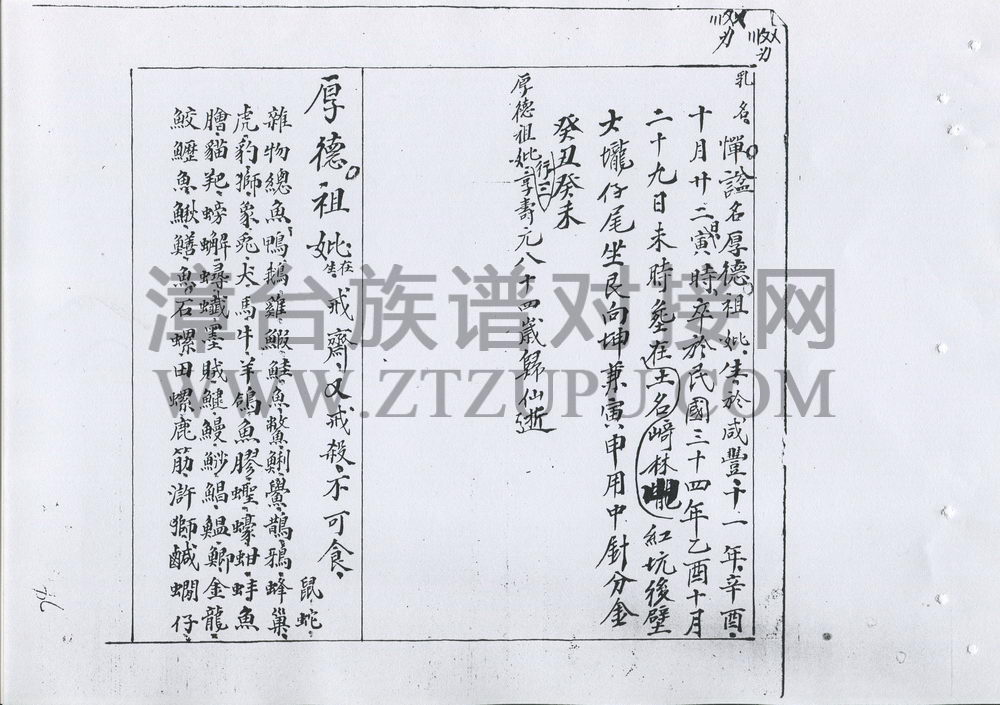 乳名憚諡名厚德祖妣生於咸豐十一年辛酉
十月廿二日寅時卒於民國三十四年乙酉十月
二十九日未時塟在土名崎林 紅坑後壁
大壠仔尾坐艮向坤兼寅申用中針分金
癸丑癸未
厚德祖妣行三享壽元八十四歲歸仙逝
厚德祖妣在生戒齋又戒殺不可食
鼠蛇
雜物總魚鴨鵝雞鰕鮭魚鱉鯏鱟鵲鴉蜂巢
虎豹獅象兎犬馬牛羊鴿魚膠蟶蠔蚶蚌魚
膾貓羓螃蠏蟳蠘墨賊鰱鰻魦鯧鰛鯽金龍
鮫鱷魚鰍鱔魚石螺田螺鹿筋滸獅鹹蠘仔
漳台族谱对接网
WWW.ZTZUPU.COM